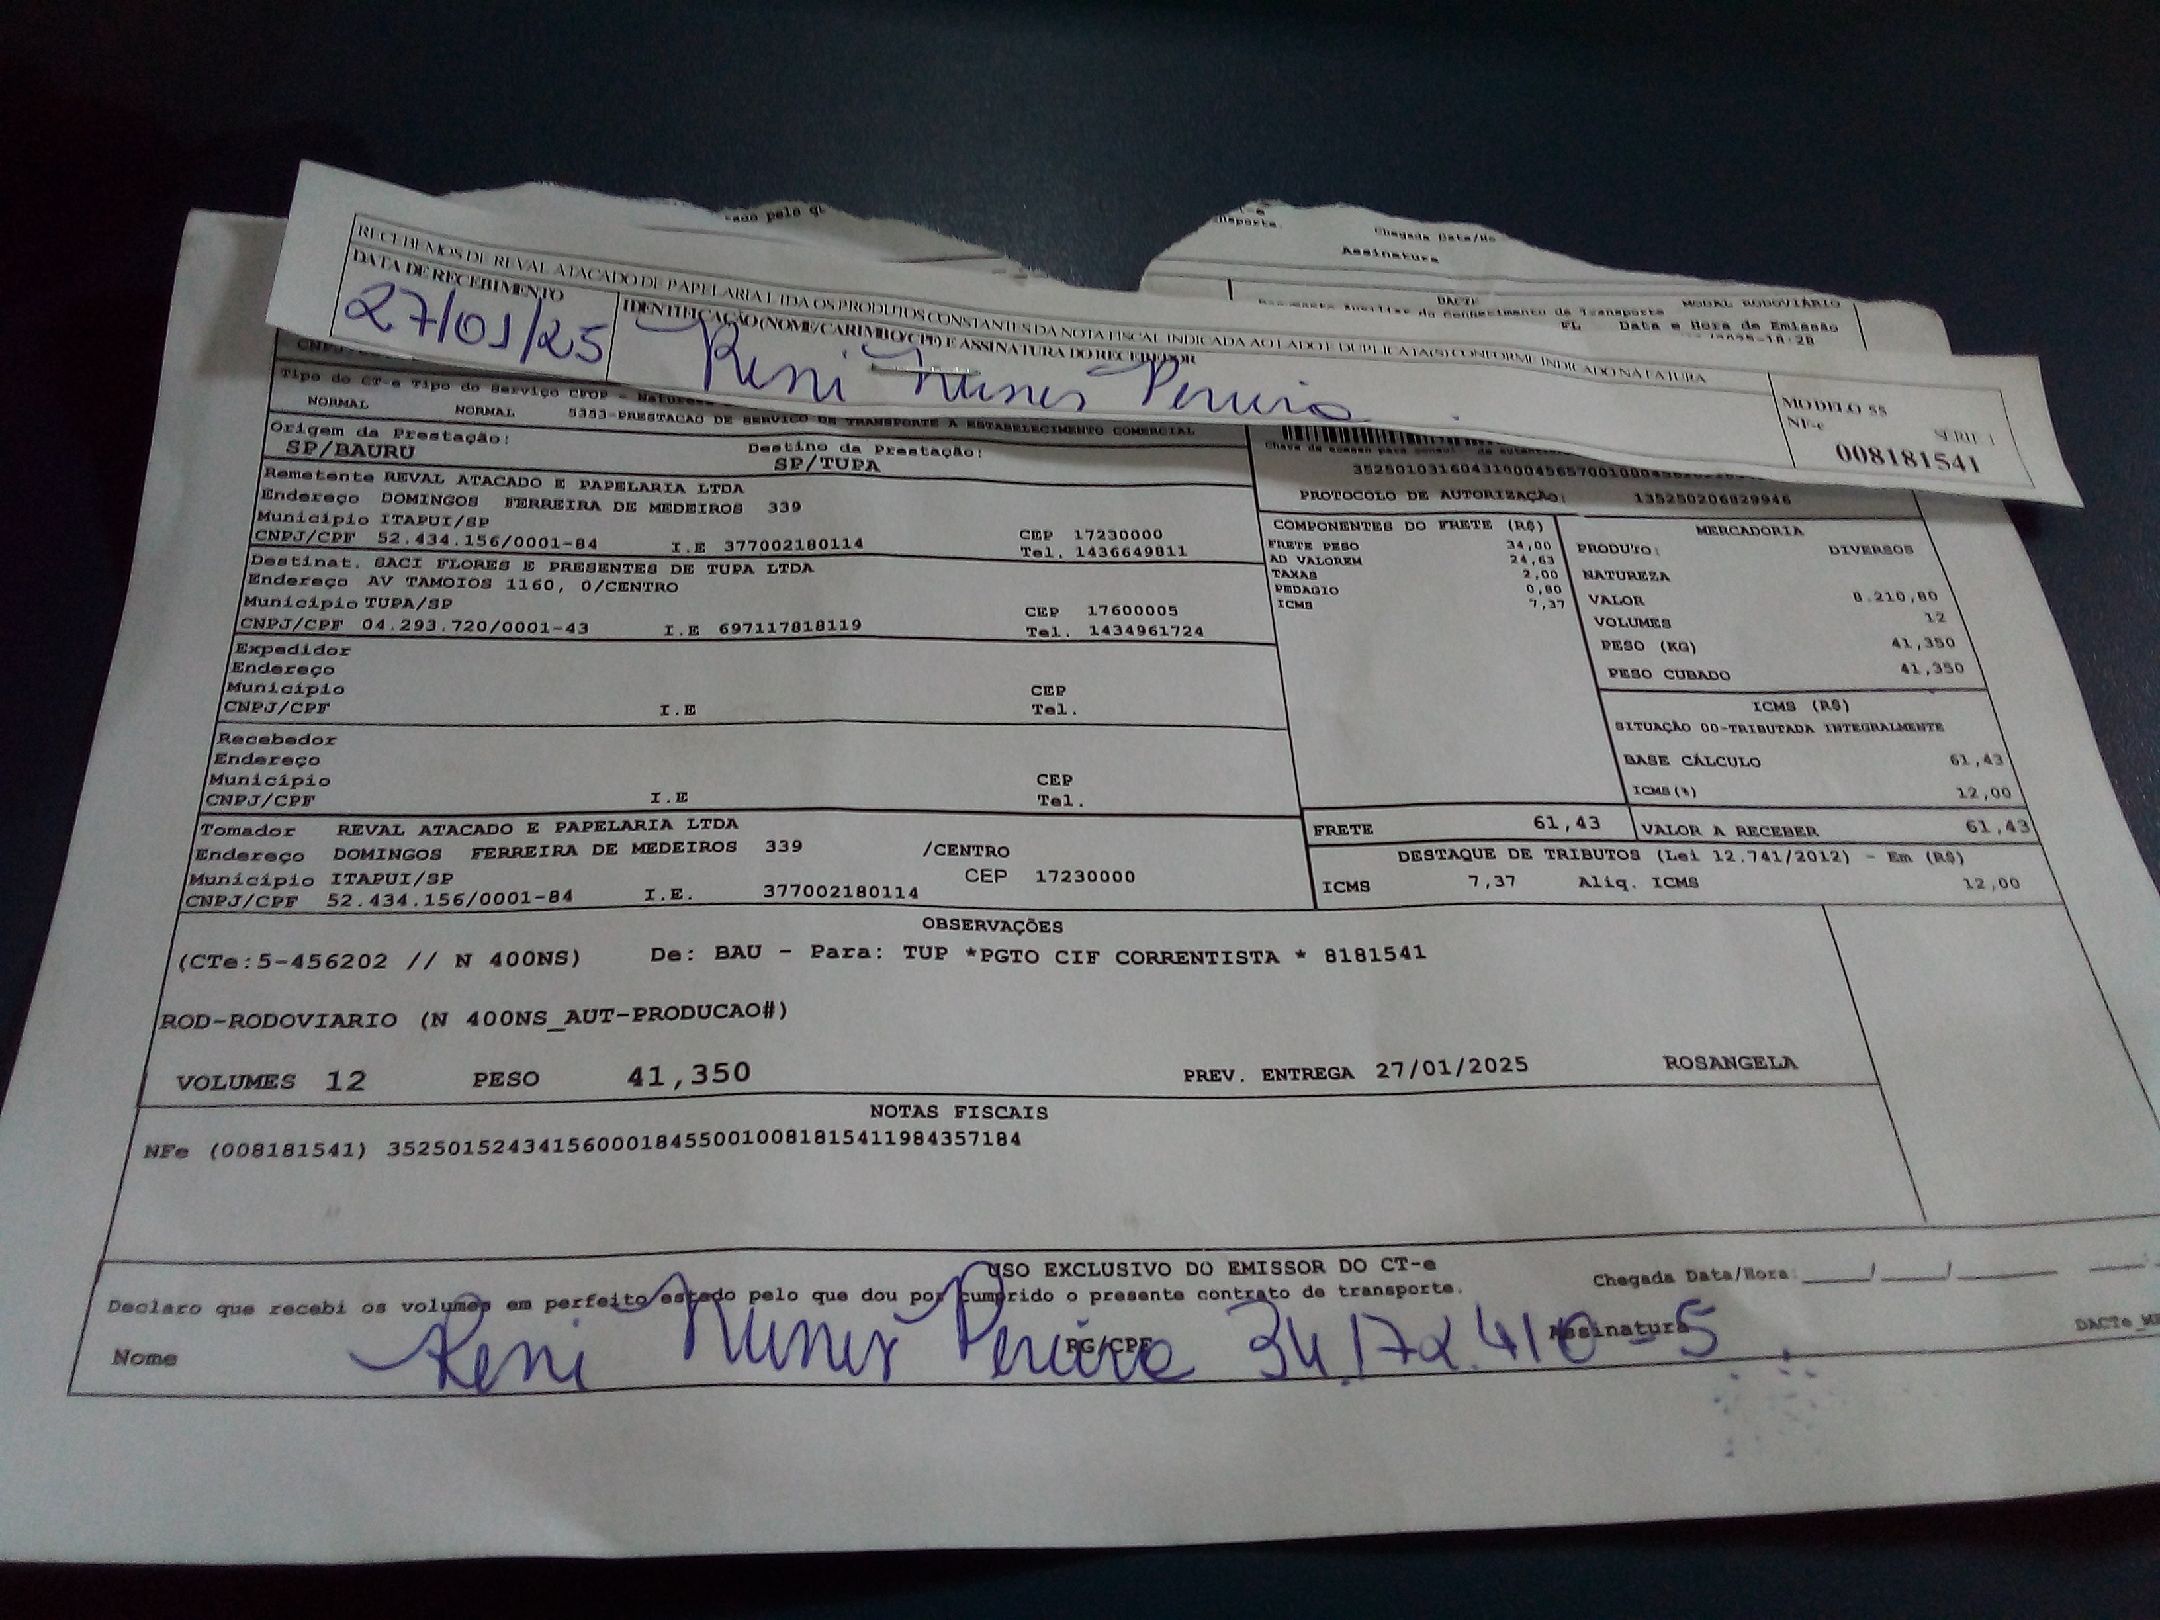 RECEBEMOS DE REVAL ATACADO DE PAPELARIA LTDA OS PRODUTOS CONSTANTES DA NOTA FISCAL INDICADA AO LADO E DUPLICATA(S) CONFORME INDICADO NA FATURA
DATA DE RECEBIMENTO
27/01/25
IDENTIFICAÇÃO (NOME/CARIMBO/CPF) E ASSINATURA DO RECEBEDOR
Reni Nunes Pereira
MODELO 55
NF-e SÉRIE 1
008181541
Chegada Data/Ho
Assinatura
DACTE MODAL RODOVIÁRIO
do Conhecimento de Transporte
FL Data e Hora de Emissão
Tipo do CT-e Tipo do Serviço CFOP - Natureza
NORMAL NORMAL 5353-PRESTACAO DE SERVICO DE TRANSPORTE A ESTABELECIMENTO COMERCIAL
Origem da Prestação: Destino da Prestação:
SP/BAURU SP/TUPA
PROTOCOLO DE AUTORIZAÇÃO: 135250206829946
Remetente REVAL ATACADO E PAPELARIA LTDA
Endereço DOMINGOS FERREIRA DE MEDEIROS 339
Município ITAPUI/SP CEP 17230000
CNPJ/CPF 52.434.156/0001-84 I.E 377002180114 Tel. 1436649811
Destinat. SACI FLORES E PRESENTES DE TUPA LTDA
Endereço AV TAMOIOS 1160, 0/CENTRO
Município TUPA/SP CEP 17600005
CNPJ/CPF 04.293.720/0001-43 I.E 697117818119 Tel. 1434961724
Expedidor
Endereço
Município CEP
CNPJ/CPF I.E Tel.
Recebedor
Endereço
Município CEP
CNPJ/CPF I.E Tel.
Tomador REVAL ATACADO E PAPELARIA LTDA
Endereço DOMINGOS FERREIRA DE MEDEIROS 339 /CENTRO
Município ITAPUI/SP CEP 17230000
CNPJ/CPF 52.434.156/0001-84 I.E. 377002180114
COMPONENTES DO FRETE (R$)
FRETE PESO 34,00
AD VALOREM 24,63
TAXAS 2,00
PEDAGIO 0,80
ICMS 7,37
MERCADORIA
PRODUTO: DIVERSOS
NATUREZA
VALOR 8.210,80
VOLUMES 12
PESO (KG) 41,350
PESO CUBADO 41,350
ICMS (R$)
SITUAÇÃO 00-TRIBUTADA INTEGRALMENTE
BASE CÁLCULO 61,43
ICMS(%) 12,00
FRETE 61,43 VALOR A RECEBER 61,43
DESTAQUE DE TRIBUTOS (Lei 12.741/2012) - Em (R$)
ICMS 7,37 Aliq. ICMS 12,00
OBSERVAÇÕES
(CTe:5-456202 // N 400NS) De: BAU - Para: TUP *PGTO CIF CORRENTISTA * 8181541
ROD-RODOVIARIO (N 400NS_AUT-PRODUCAO#)
VOLUMES 12 PESO 41,350 PREV. ENTREGA 27/01/2025 ROSANGELA
NOTAS FISCAIS
NFe (008181541) 35250152434156000184550010081815411984357184
USO EXCLUSIVO DO EMISSOR DO CT-e
Declaro que recebi os volumes em perfeito estado pelo que dou por cumprido o presente contrato de transporte. Chegada Data/Hora: ____/____/______
Nome Reni Nunes Pereira RG/CPF 34.172.410-5 Assinatura